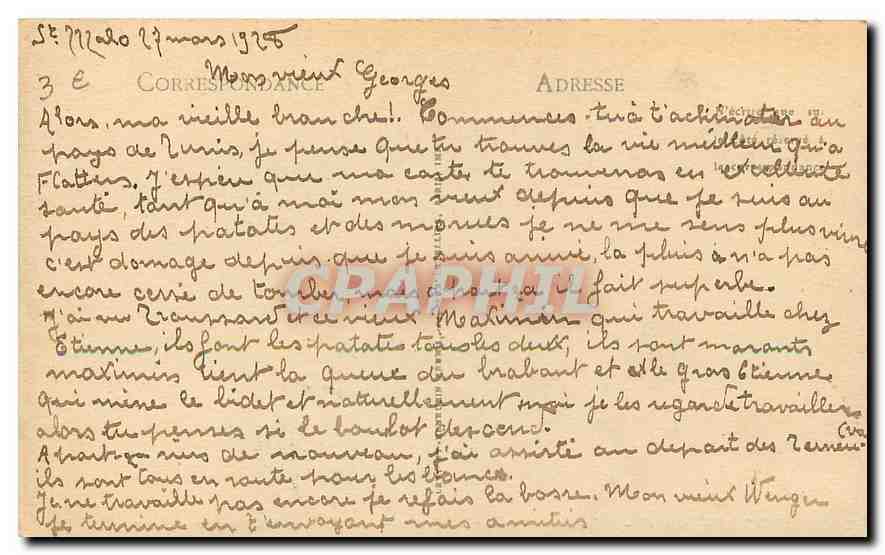 St Malo 27 mars 1928
Mon vieux Georges
3 €
CORRESPONDANCE
ADRESSE
Alors, ma vieille branche!. Commences-tu à t'aclimater au
pays de Tunis, je pense que tu trouves la vie meilleur qu'a
Flatters. J'espieu que ma carte te trouveras en excelente
santé, tant qu'à moi mon vieux depuis que je suis au
pays des patates et des morues je ne me sens plus vivre
c'est domage depuis que je suis arrivé, la pluis à n'a pas
encore cessé de tomber, mais à part ça il fait superbe.
J'ai vu Troussard et le vieux Maximin qui travaille chez
Etienne, ils font les patates tous les deux, ils sont marants
maximin tient la queue du brabant et le gros Etienne
qui mène le bidet et naturellement moi je les regarde travailler
alors tu penses si le boulot descend.
(va
A part ça rien de nouveau, j'ai assisté au depart des Terneu-
ils sont tous en route pour les bancs.
Je ne travaille pas encore je refais la bosse. Mon vieux Wenger
je termine en t'envoyant mes amitiés
CPAPHIL